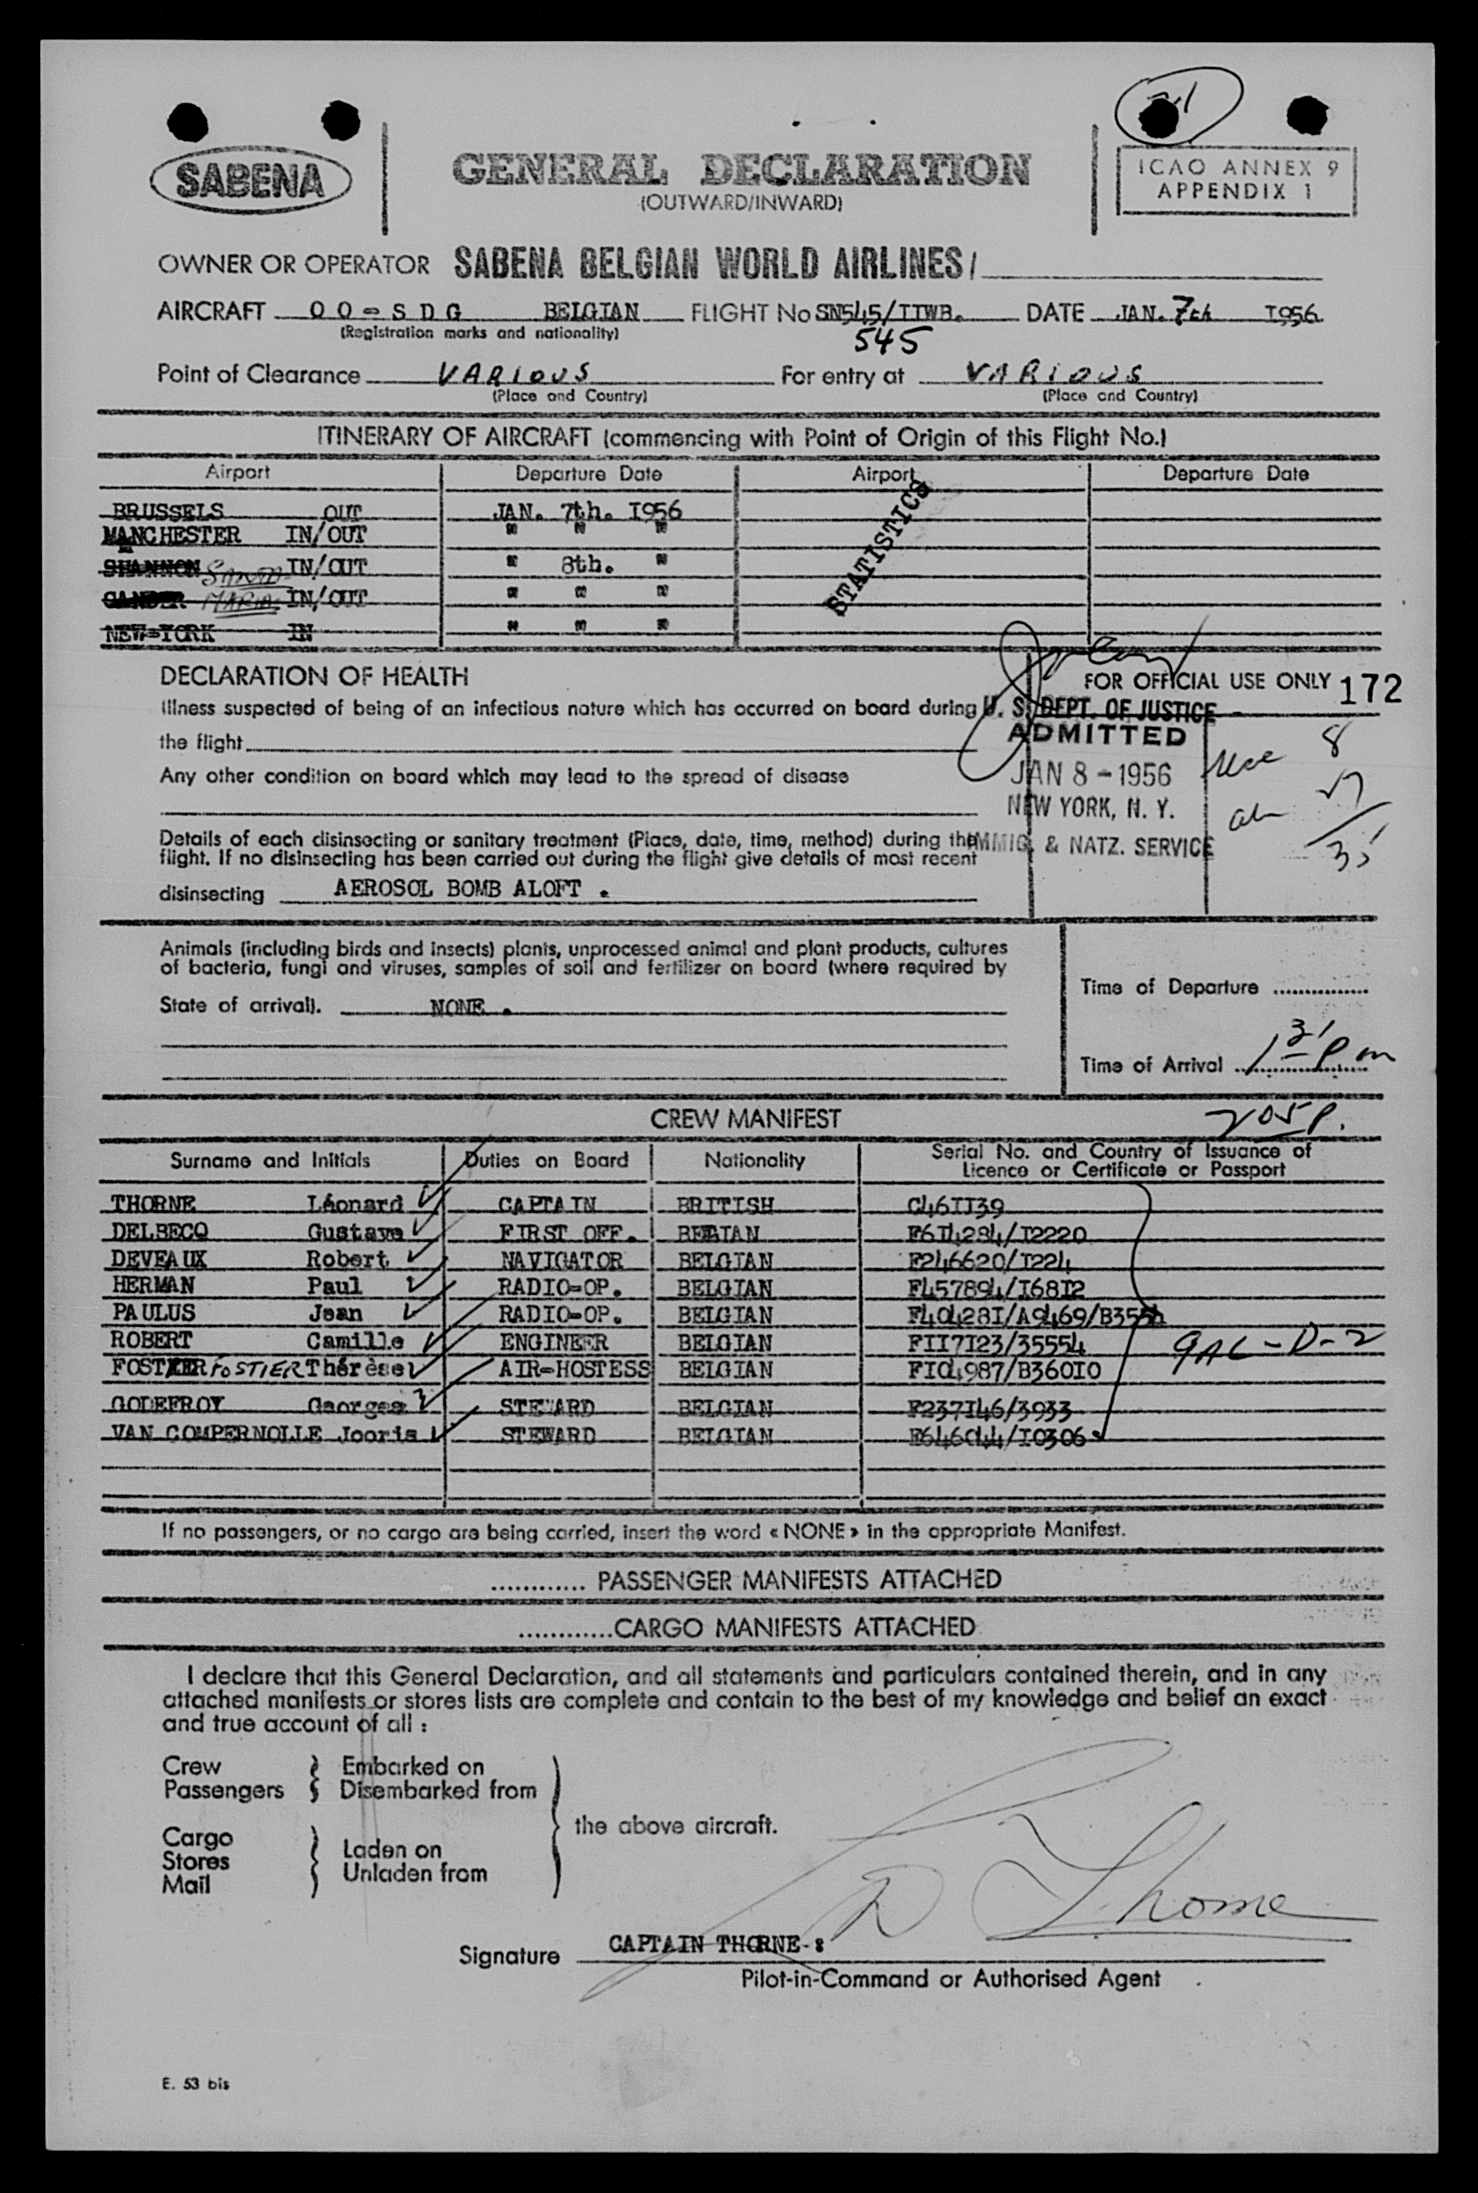 SABENA
GENERAL DECLARATION
(OUTWARD/INWARD)
ICAO ANNEX 9
APPENDIX 1
OWNER OR OPERATOR SABENA BELGIAN WORLD AIRLINES/
AIRCRAFT OO-SDG BELGIAN FLIGHT No SN545/IIWB. DATE JAN. 7th I956
(Registration marks and nationality)
545
Point of Clearance VARIOUS For entry at VARIOUS
(Place and Country) (Place and Country)
ITINERARY OF AIRCRAFT (commencing with Point of Origin of this Flight No.)
Airport Departure Date Airport Departure Date
STATISTICS
BRUSSELS OUT JAN. 7th. I956
MANCHESTER IN/OUT " " "
SHANNON SANTA IN/OUT " 8th. "
GANDER MARIA IN/OUT " " "
NEW-YORK IN " " "
DECLARATION OF HEALTH
FOR OFFICIAL USE ONLY 172
Illness suspected of being of an infectious nature which has occurred on board during
the flight
U. S. DEPT. OF JUSTICE
ADMITTED
JAN 8 - 1956
NEW YORK, N. Y.
IMMIG. & NATZ. SERVICE
8
Any other condition on board which may lead to the spread of disease
Details of each disinsecting or sanitary treatment (Place, date, time, method) during the
flight. If no disinsecting has been carried out during the flight give details of most recent
disinsecting AEROSOL BOMB ALOFT .
Animals (including birds and insects) plants, unprocessed animal and plant products, cultures
of bacteria, fungi and viruses, samples of soil and fertilizer on board (where required by
State of arrival). NONE .
Time of Departure ...............
Time of Arrival 1 31 pm
205P.
CREW MANIFEST
Surname and Initials Duties on Board Nationality Serial No. and Country of Issuance of
Licence or Certificate or Passport
THORNE Léonard CAPTAIN BRITISH C46II39
DELBECQ Gustave FIRST OFF. BELGIAN F6I4284/I2220
DEVEAUX Robert NAVIGATOR BELGIAN F246620/I224
HERMAN Paul RADIO-OP. BELGIAN F457894/I68I2
PAULUS Jean RADIO-OP. BELGIAN F40428I/A9469/B355
ROBERT Camille ENGINEER BELGIAN FII7I23/35554
GAC-D-2
FOSTIER Thérèse AIR-HOSTESS BELGIAN FI04987/B360I0
GODEFROY Georges STEWARD BELGIAN F237I46/3933
VAN COMPERNOLLE Jooris STEWARD BELGIAN F646044/I0306
If no passengers, or no cargo are being carried, insert the word « NONE » in the appropriate Manifest.
............ PASSENGER MANIFESTS ATTACHED
............CARGO MANIFESTS ATTACHED
I declare that this General Declaration, and all statements and particulars contained therein, and in any
attached manifests or stores lists are complete and contain to the best of my knowledge and belief an exact
and true account of all :
Crew Embarked on
Passengers Disembarked from
the above aircraft.
Cargo
Stores Laden on
Mail Unladen from
Thorne
Signature CAPTAIN THORNE-:
Pilot-in-Command or Authorised Agent
E. 53 bis